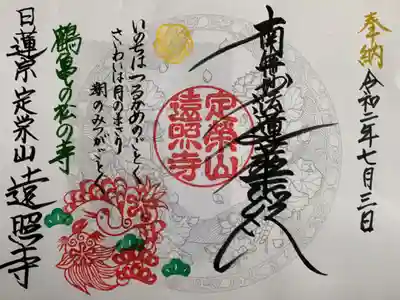 奉納
令和二年七月三日
南無妙法蓮華経
定榮山
遠照寺
いのちはつるかめのごとく
さいわいは月のまさり
潮のみつるがごとく
鶴亀の松の寺
日蓮宗 定栄山 遠照寺